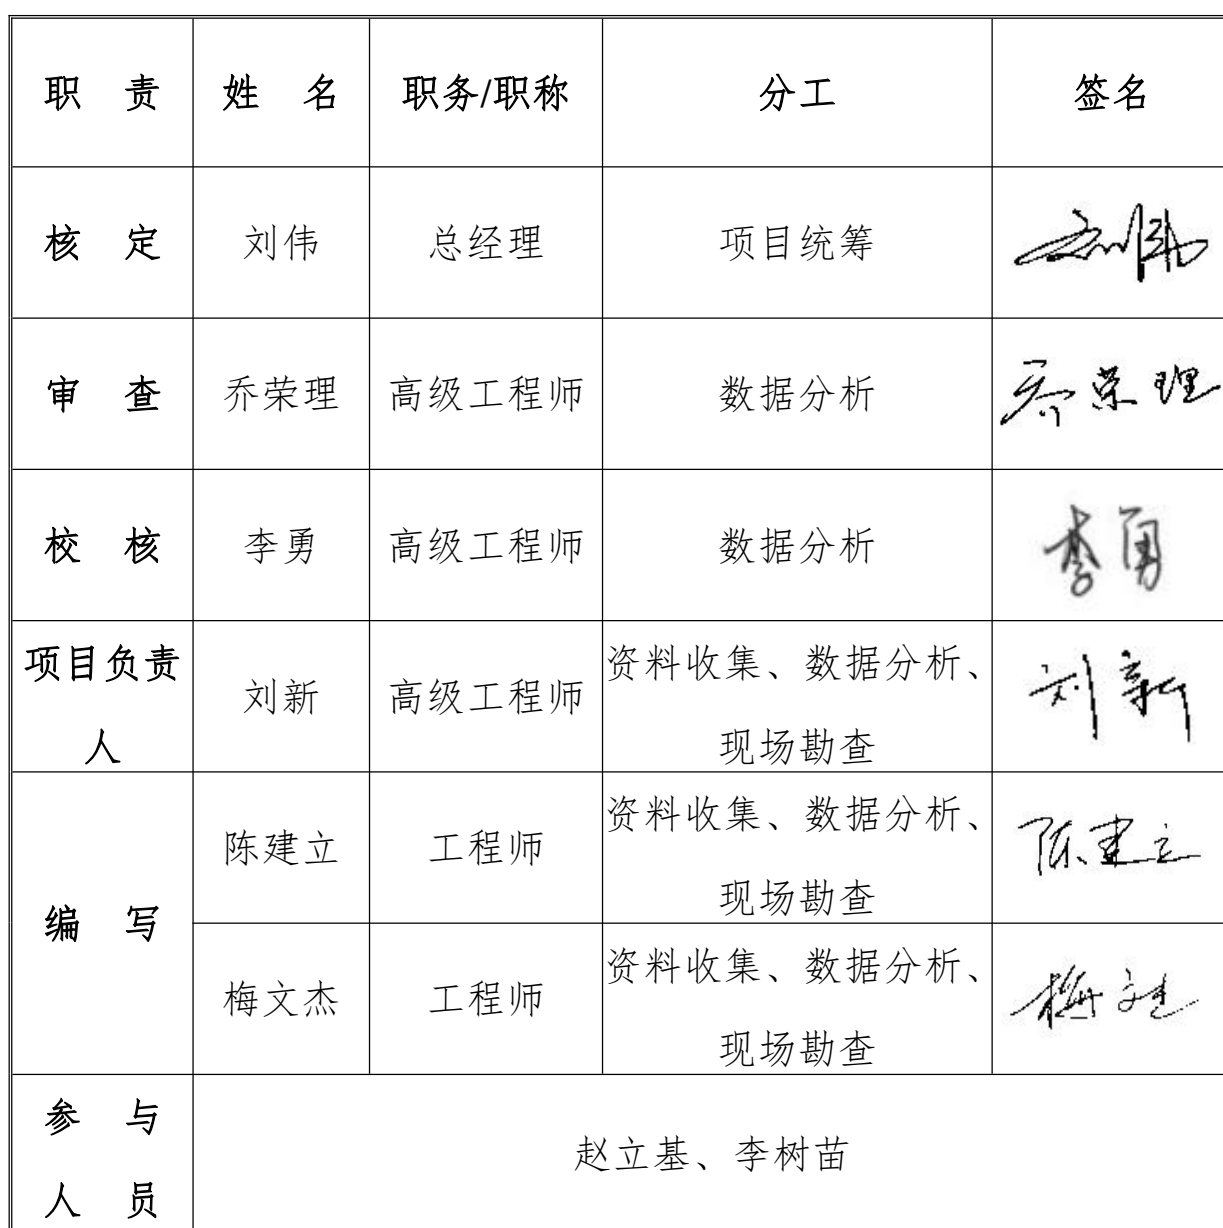 职 责 姓 名 职务/职称 分工 签名
核 定 刘伟 总经理 项目统筹 刘伟
审 查 乔荣理 高级工程师 数据分析 乔荣理
校 核 李勇 高级工程师 数据分析 李勇
项目负责
人
刘新 高级工程师
资料收集、数据分析、
现场勘查
刘新
编 写
陈建立 工程师
资料收集、数据分析、
现场勘查
陈建立
梅文杰 工程师
资料收集、数据分析、
现场勘查
梅文杰
参 与
人 员
赵立基、李树苗